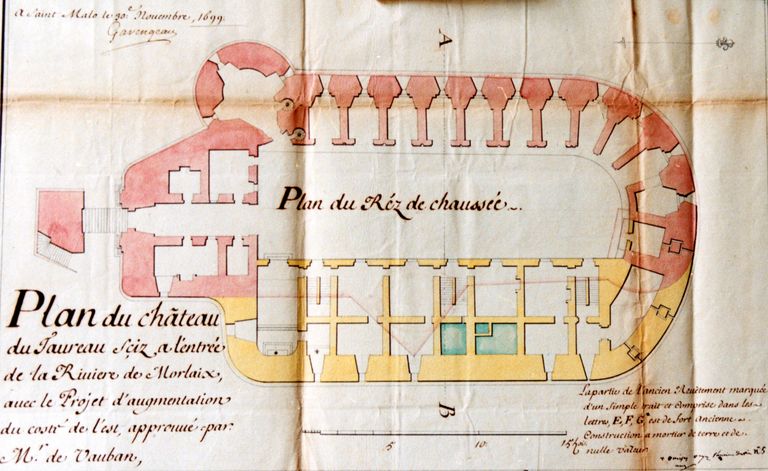 A Saint Malo le 30e. Novembre, 1699.
Gavengeau
A
Plan du Réz de chaussée.
Plan du château
du Taureau Seiz, a l'entrée
de la Riviere de Morlaix,
avec le Projet d'augmentation
du costé de l'est, approuué par
Mr. de Vauban,
B
5
10
15
La partie de l'ancien Revêtement marquée
d'un simple trait et comprise dans les
lettres, E, F, G, est de fort ancienne
Construction a mortier de terre et de
nulle valeur